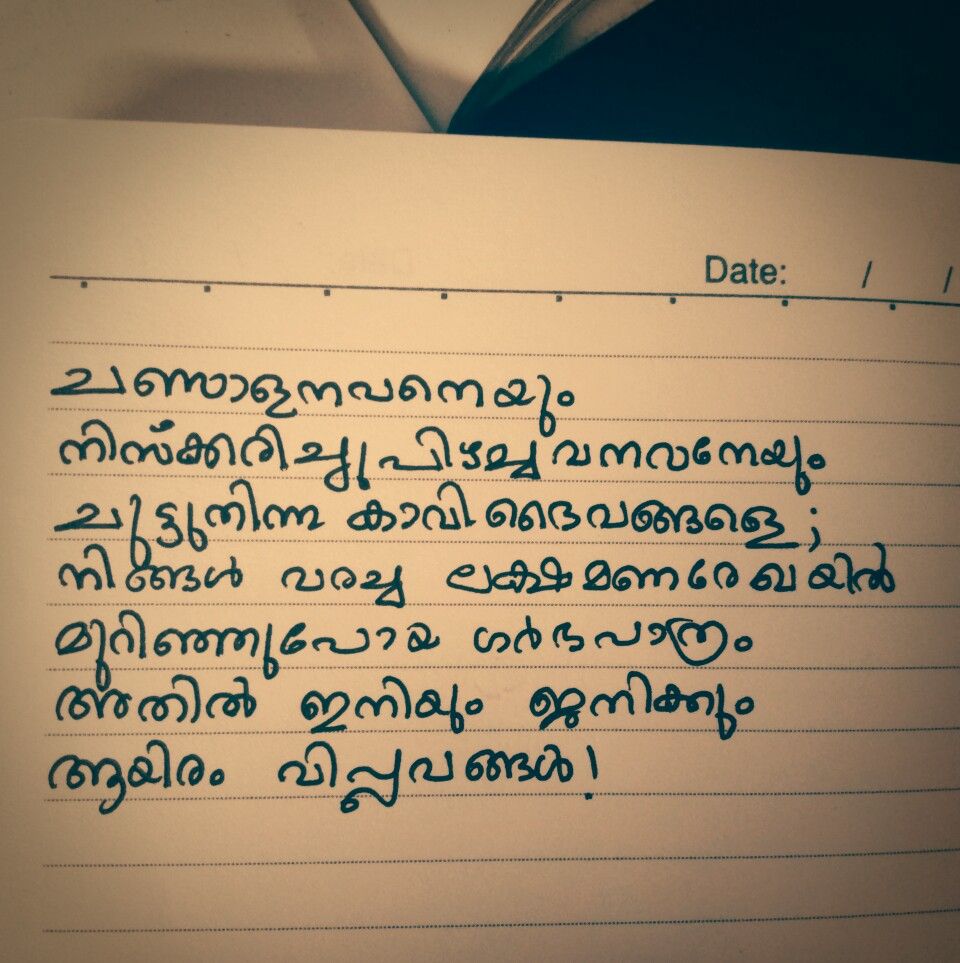 Date: / /
ചണ്ഡാളനവനെയും
നിസ്ക്കരിച്ചു പിഴച്ചവനവനേയും
ചുട്ടുനിന്ന കാവി ദൈവങ്ങളെ;
നിങ്ങൾ വരച്ച ലക്ഷമണരേഖയിൽ
മുറിഞ്ഞുപോയ ഗർഭപാത്രം
അതിൽ ഇനിയും ജനിക്കും
ആയിരം വിപ്ലവങ്ങൾ!